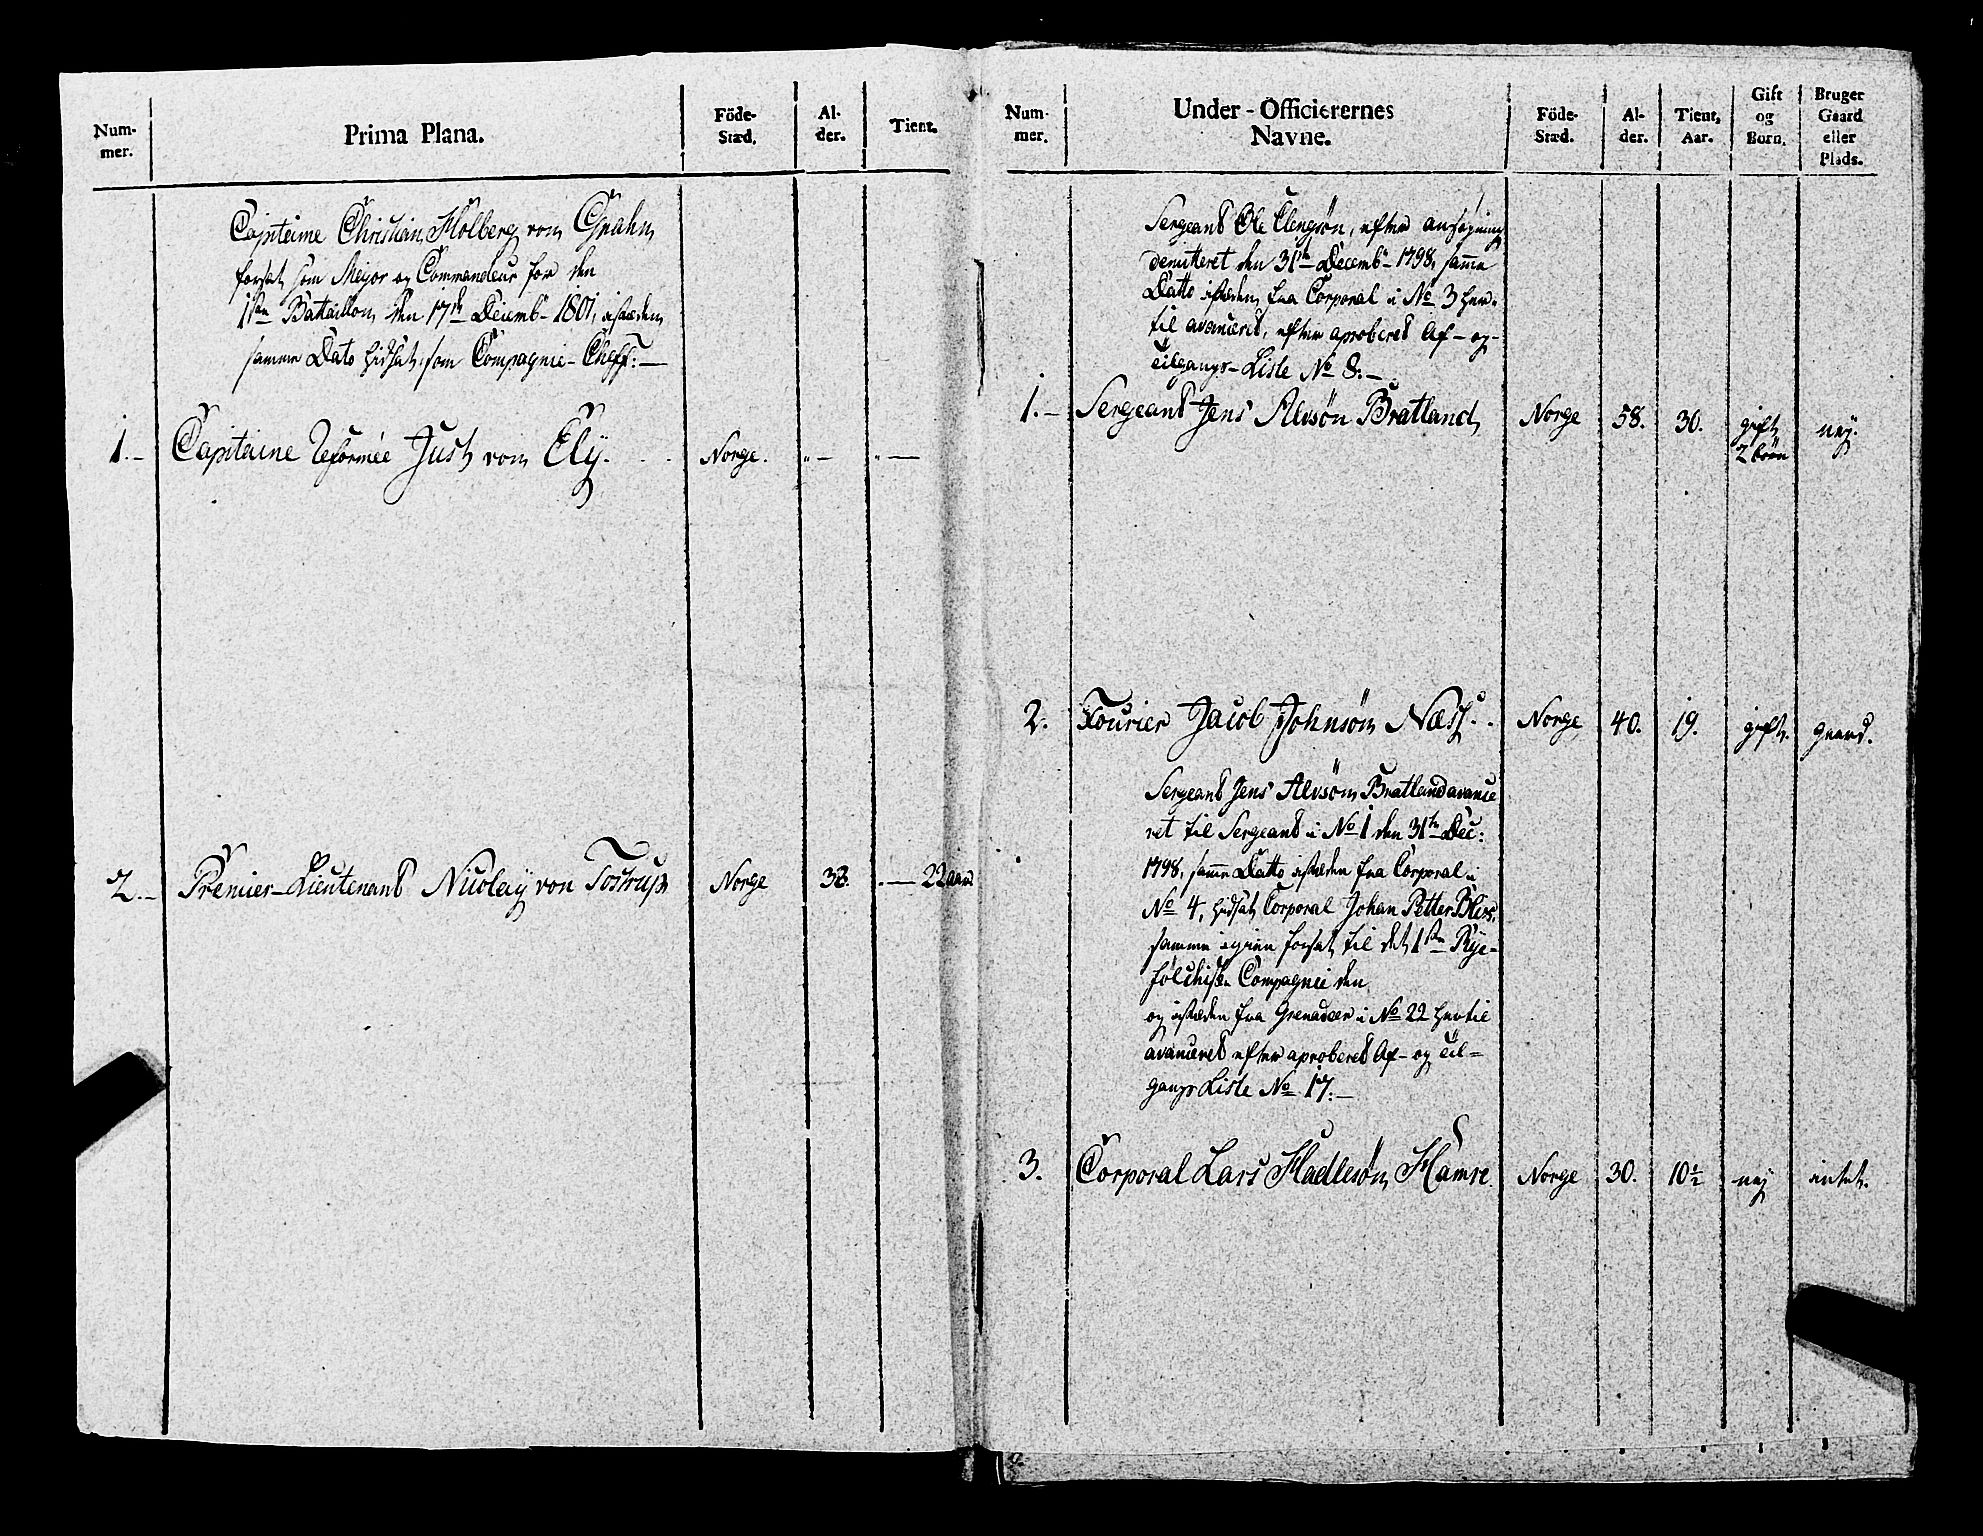 Num-
mer.
Prima Plana.
Föde-
Stæd.
Al-
der.
Tient.
Capitaine Christian Holberg von Gnahn
forsat som Mejor og Commandeur for den
1ste Battaillon, den 17de Decemb- 1801, isteden
samme Dato hidsat som Compagnie-Cheff:—
1.— Capitaine Reformée Just von Ely. Norge. "— "—
2.— Premier-Lieutenant Nicolay von Tostrup Norge 38. .—22 aar
Num-
mer.
Under-Officierernes
Navne.
Föde-
Stæd.
Al-
der.
Tient,
Aar.
Gift
og
Born.
Bruger
Gaard
eller
Plads.
Sergeant Ole Elengsön, efter ansøgning
demitteret den 31te Decemb- 1798, samme
Datto isteden fra Corporal i No 3 her-
til avanceret, efter aproberet Af- og-
Tilgangs-Liste No 8.—
1.— Sergeant Jens Alvsön Bratland, Norge 58. 30. gift nej.
2 börn
2. Fourier Jacob Johnsön Næss. Norge 40. 19. gift. gaard.
Sergeant Jens Alvsön Bratland avance
ret til Sergeant i No 1 den 31te Dec:
1798, samme Datto isteden fra Corporal i
No 4, hidsat Corporal Johan Petter Bless,
samme igien forsat til det 1ste Rye-
fölchiske Compagnie den
og isteden fra Grenadeer i No 22 hertil
avanceret efter aproberet Af- og Til-
gangs Liste No 17.—
3. Corporal Lars Hadlesön Hamre. Norge 30. 10½ nej intet.